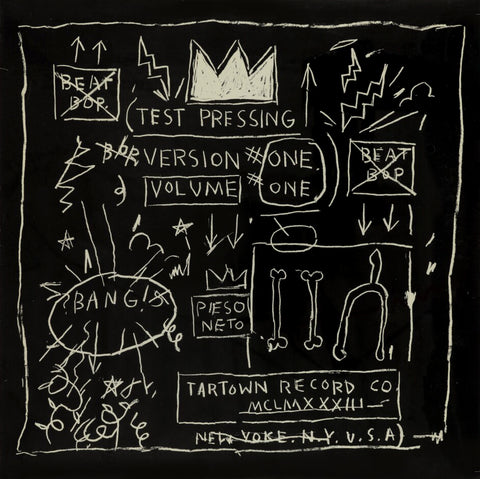 BEAT
BOP
(TEST PRESSING
BOP VERSION # ONE.
VOLUME # ONE )
BEAT
BOP
?BANG!
PIESO
NETO
TARTOWN RECORD CO.
MCLMXXXIII
NEW YOKE. N.Y. U.S.A)